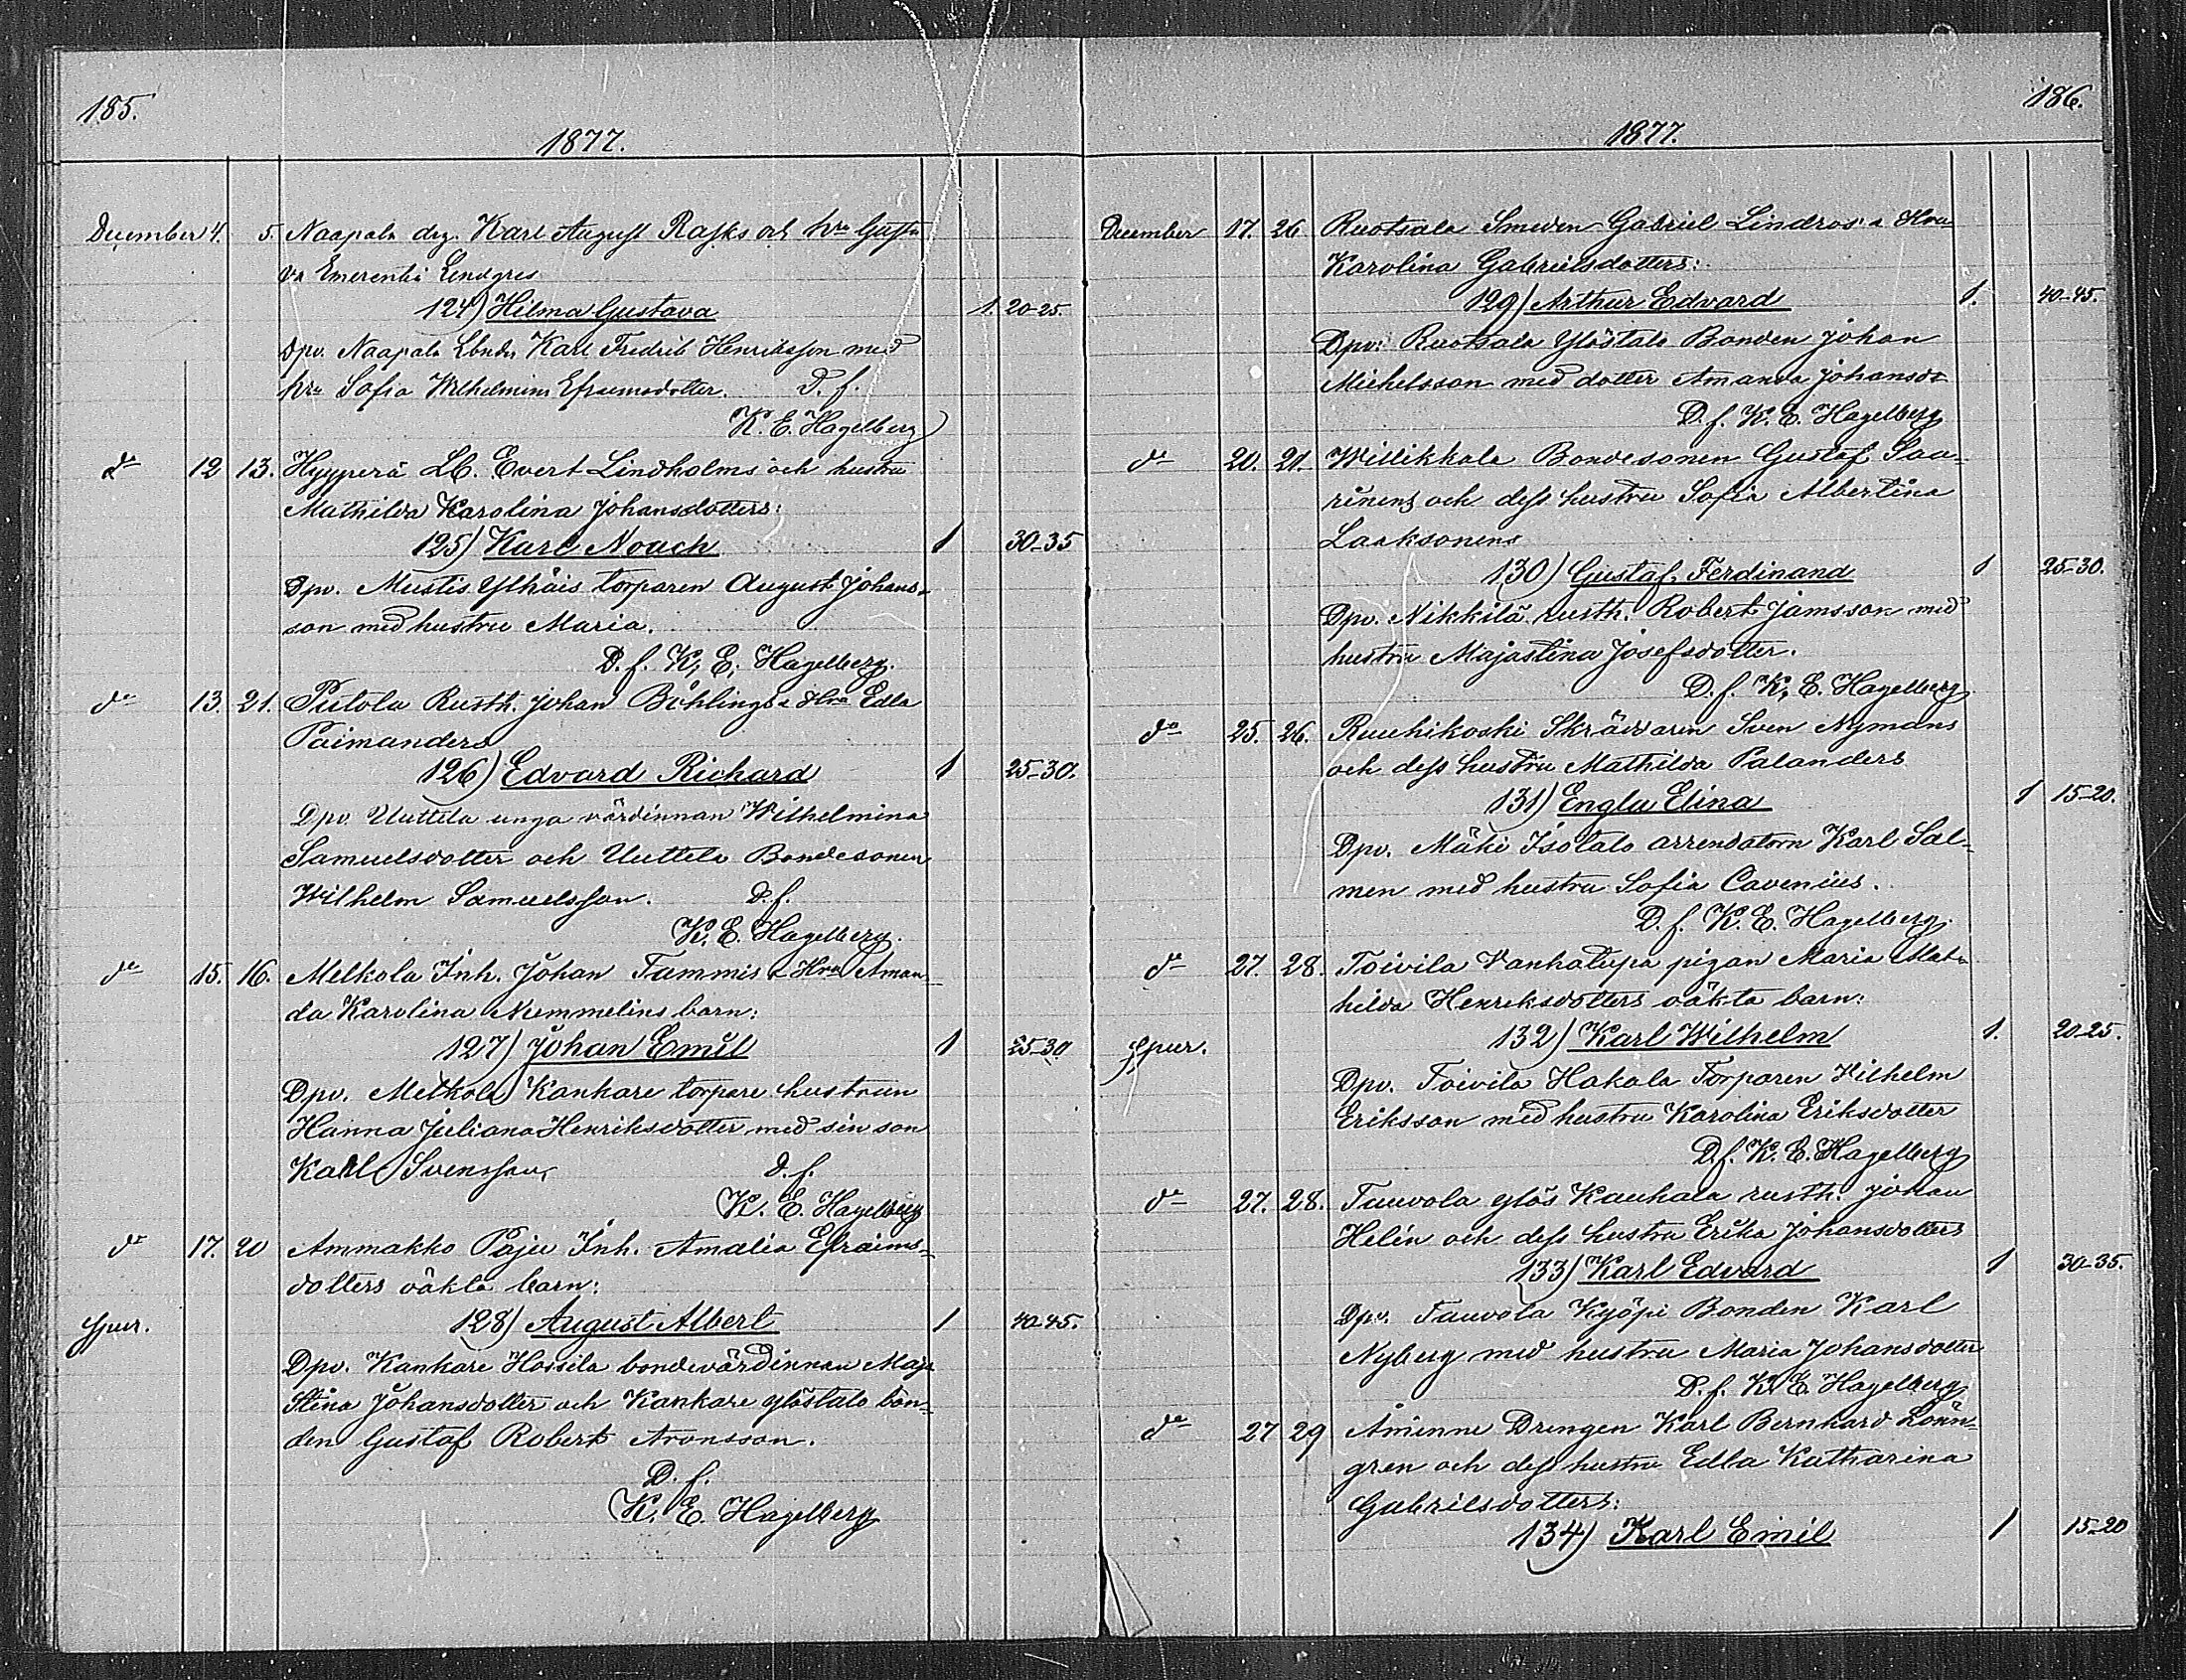 185.
1877.
December 4. 5. Naapala drg. Karl August Rasks och hru Gusta
va Emerentia Lindgres
124) Hilma Gustava 1. 20-25.
Dpv. Naapala Karl Fredrik Henriksson med
hru Sofia Wilhelmina Efraimsdotter. D. f.
K. E. Hagelberg
do 12 13. Hypperä LC. Evert Lindholms och hustru
Mathilda Karolina Johansdotters:
125) Karl Noach 1 30-35
Dpv. Mustis Ylhäis torparen August Johans-
son med hustru Maria.
D. f. K. E. Hagelberg.
do 13. 21. Pietola Rusth. Johan Böhlings a Hru Edla
Paimanders
126) Edvard Richard 1 25-30.
Dpv. Uuttela unga värdinnan Wilhelmina
Samuelsdotter och Uuttela Bondesonen
Wilhelm Samuelsson. D. f.
K. E. Hagelberg.
do 15. 16. Melkola Inh. Johan Tammis a Hru Aman-
da Karolina Nummelins barn:
127) Johan Emil 1 25-30
Dpv. Melkola Kankare torpare hustrun
Hanna Juliana Henriksdotter med sin son
Karl Svensson, D. f.
K. E. Hagelberg
do 17. 20 Ammakko Paju Inh. Amalia Efraims-
dotters oäkta barn:
Spur. 128) August Albert 1 40-45.
Dpv. Kankare Hossila bondevärdinnan Maja
Stina Johansdotter och Kankare Ylöstalo bon-
den Gustaf Robert Aronsson.
D. f.
K. E. Hagelberg
186.
1877.
December 17. 26 Ruotsala Smeden Gabriel Lindros' a Hru
Karolina Gabrielsdotters:
129) Arthur Edvard 1. 40-45.
Dpv: Ruotsala Ylöstalo Bonden Johan
Michelsson med dotter Amanda Johansdr
D. f. K. E. Hagelberg
do 20. 21. Willikkala Bondesonen Gustaf Saa-
rinens och dess hustru Sofia Albertina
Laaksonens
130) Gustaf Ferdinand 1 25-30.
Dpv. Nikkilä rusth. Robert Jamsson med
hustru Majastina Josefsdotter.
D. f. K. E. Hagelberg
do 25. 26. Ruuhikoski Skräddaren Sven Nymans
och dess hustru Mathilda Palanders
131) Engla Elina 1 15-20.
Dpv. Mäki Isotalo arrendatorn Karl Sal-
men med hustru Sofia Cavenius.
D. f. K. E. Hagelberg.
do 27. 28. Toivila Vanhatupa pigan Maria Mat-
hilda Henriksdotters oäkta barn:
Spur. 132) Karl Wilhelm 1. 20-25.
Dpv. Toivila Hakala Torparen Wilhelm
Eriksson med hustru Karolina Eriksdotter
D. f. K. E. Hagelberg
do 27. 28. Tauvola Ylös Kauhala rusth. Johan
Helén och dess hustru Erika Johansdotters
133) Karl Edvard 1 30-35.
Dpv. Tauvola Kyöpi Bonden Karl
Nyberg med hustru Maria Johansdotter
D. f. K. E. Hagelberg
do 27 29 Åminne Drengen Karl Bernhard Lönn-
gren och dess hustru Edla Katharina
Gabrielsdotters:
134) Karl Emil 1 15-20